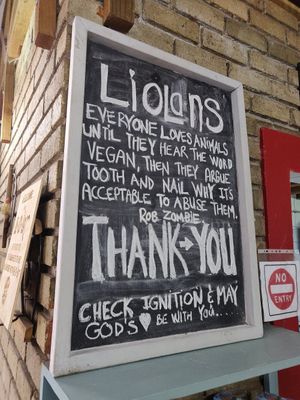 LiOLANS
EVERYONE LOVES ANIMALS
UNTIL THEY HEAR THE WORD
VEGAN, THEN THEY ARGUE
TOOTH AND NAIL WHY IT'S
ACCEPTABLE TO ABUSE THEM.
ROB ZOMBIE
THANK→YOU
CHECK IGNITION & MAY
GOD'S ♥ BE WITH YOU.....
NO
ENTRY